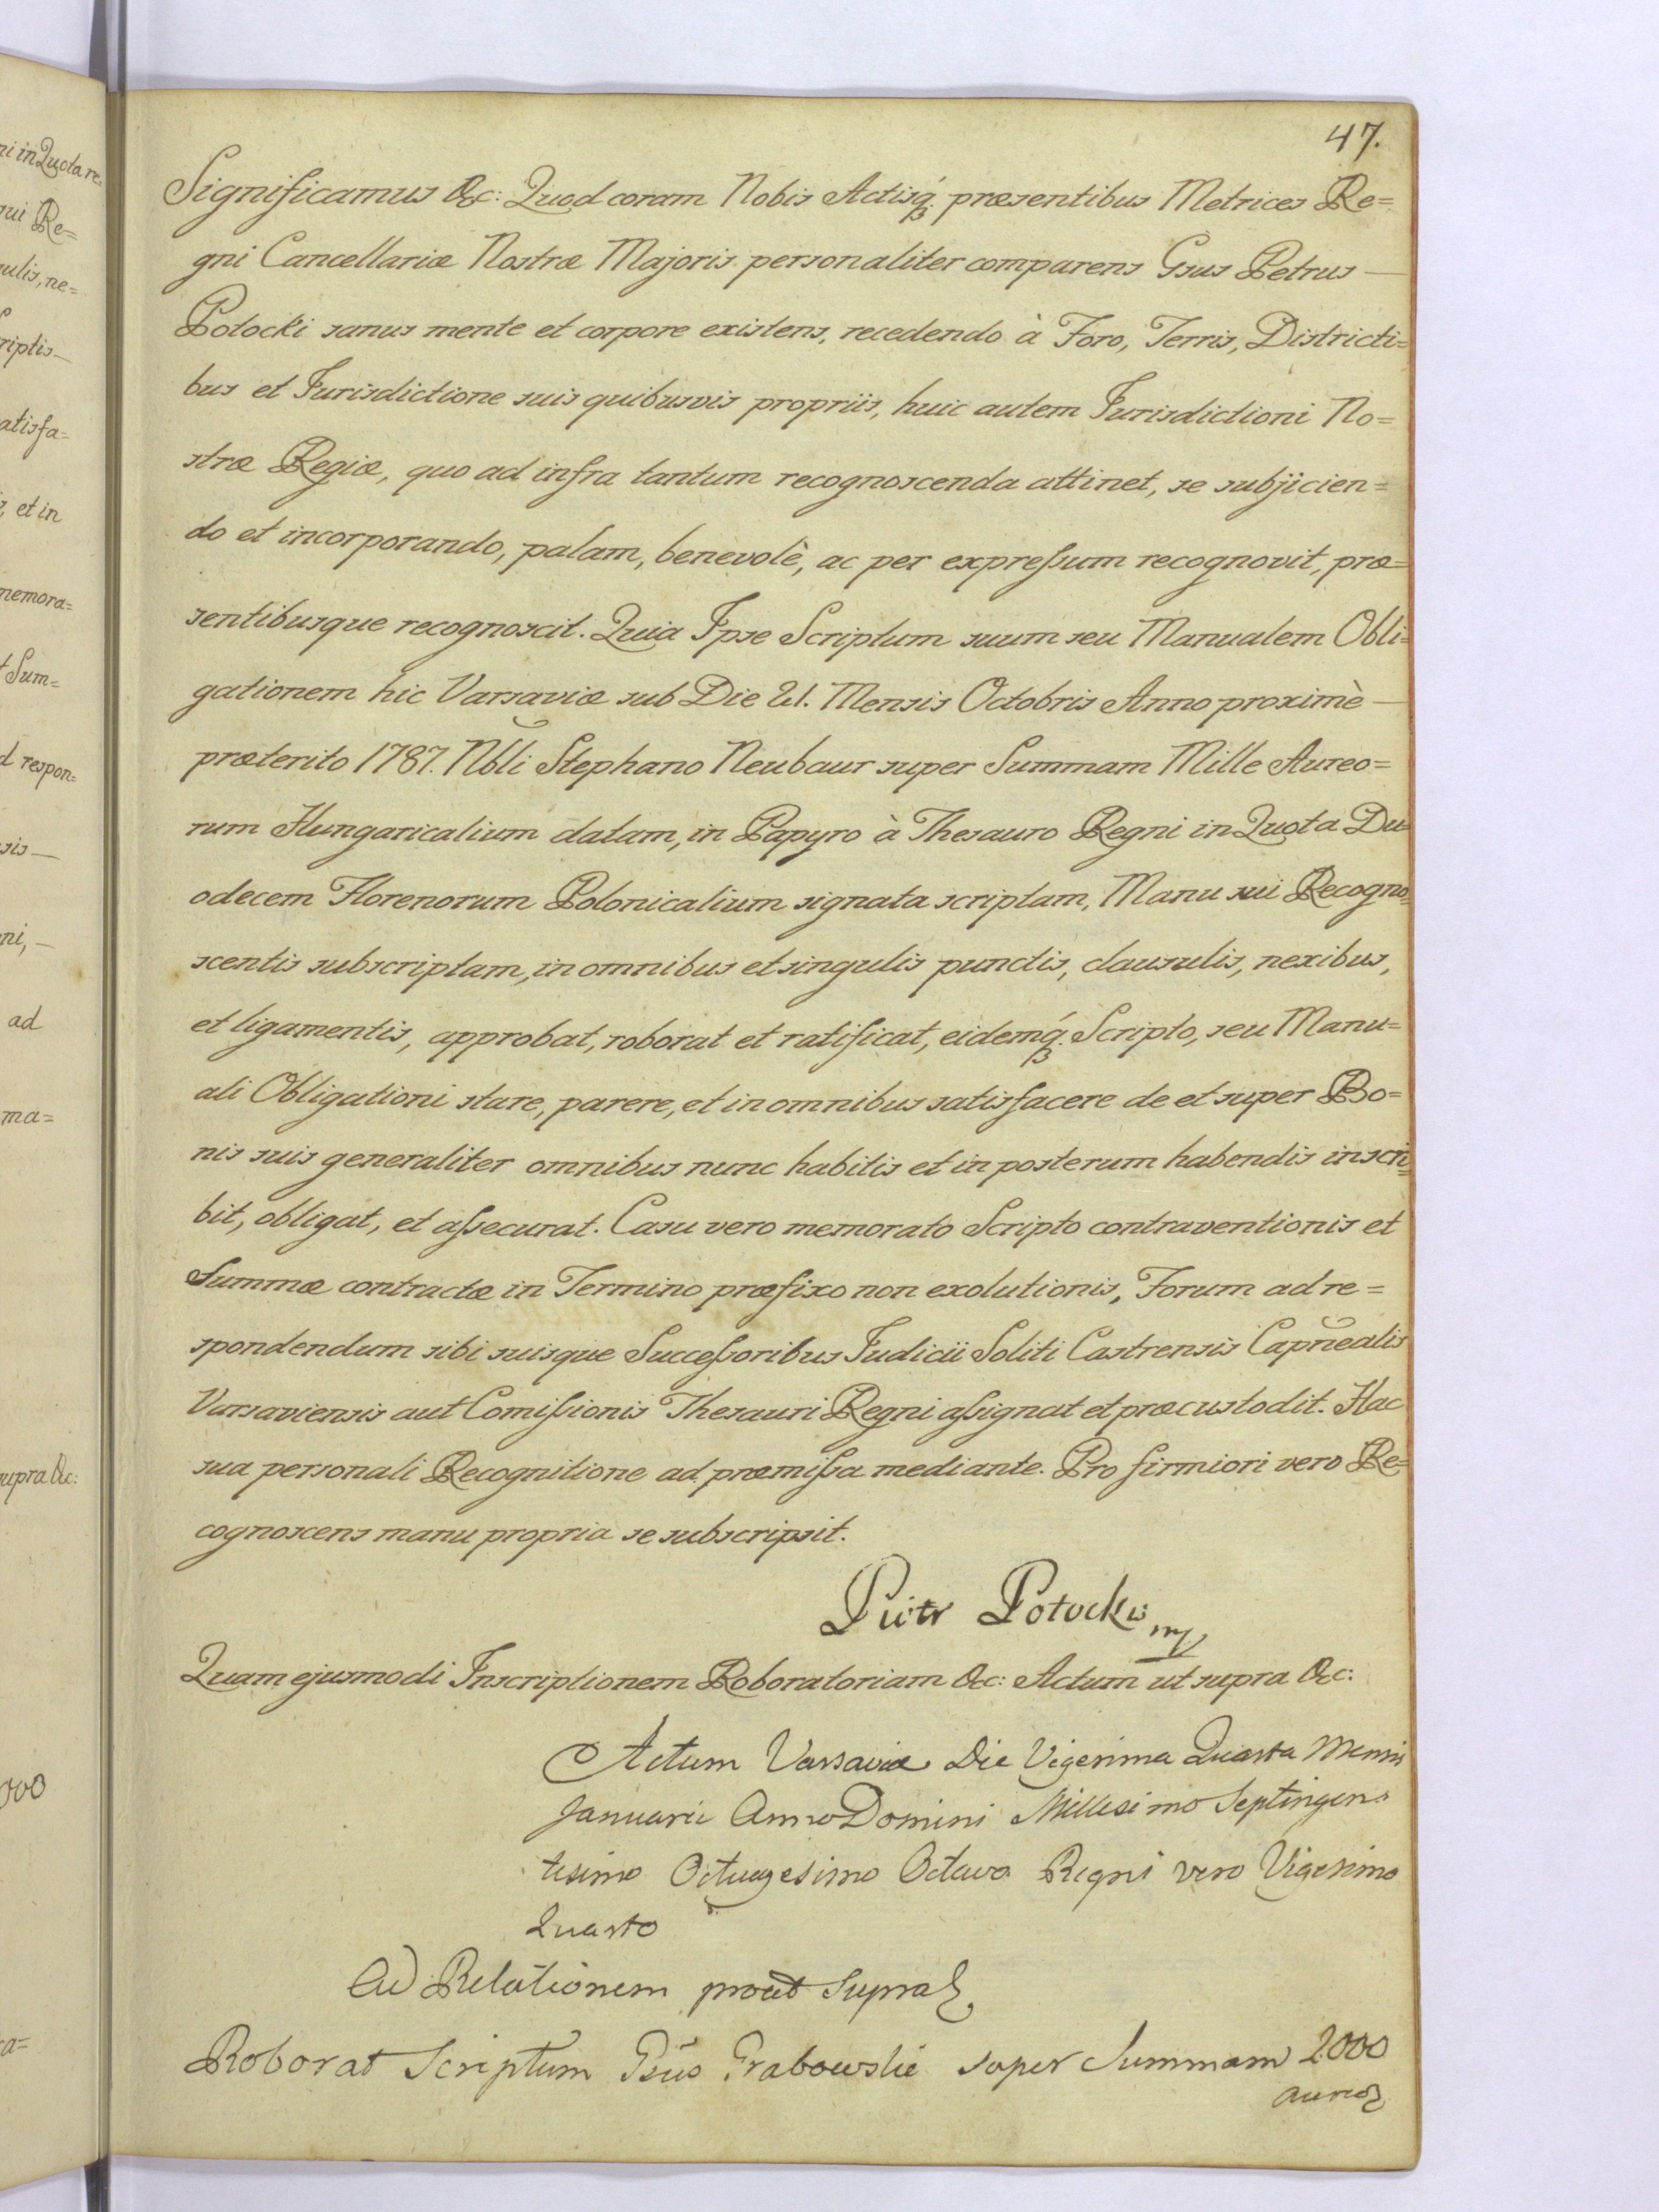 47.
Significamus &c: Quod coram Nobis Actisq́ꝫ præsentibus Metrices Re=
gni Cancellariæ Nostræ Majoris personaliter comparens Gsus Petrus —
Potocki sanus mente et corpore existens, recedendo à Foro, Terris, Districti=
bus et Jurisdictione suis quibusvis propriis, huic autem Jurisdictioni No=
stræ Regiæ, quo ad infra tantum recognoscenda attinet, se subjicien=
do et incorporando, palam, benevolè, ac per expreſsum recognovit, præ=
sentibusque recognoscit. Quia Ipse Scriptum suum seu Manualem Obli=
gationem hic Varsaviæ sub Die 21. Mensis Octobris Anno proximè —
præterito 1787. Nb̃li Stephano Neubaur super Summam Mille Aureo=
rum Hungaricalium datam, in Papyro à Thesauro Regni in Quota Du=
odecem Florenorum Polonicalium signata scriptam, Manu sui Recogno=
scentis subscriptam, in omnibus et singulis punctis, clausulis, nexibus,
et ligamentis, approbat, roborat et ratificat, eidemq́ꝫ Scripto, seu Manu=
ali Obligationi stare, parere, et in omnibus satisfacere de et super Bo=
nis suis generaliter omnibus nunc habitis et in posterum habendis inscri=
bit, obligat, et aſsecurat. Casu vero memorato Scripto contraventionis et
Summæ contractæ in Termino præfixo non exolutionis, Forum ad re=
spondendum sibi suisque Succeſsoribus Judicii Soliti Castrensis Capñealis
Varsaviensis aut Comiſsionis Thesauri Regni aſsignat et præcustodit. Hac
sua personali Recognitione ad præmiſsa mediante. Pro firmiori vero Re=
cognoscens manu propria se subscripsit.
Piotr Potocki mp
Quam ejusmodi Inscriptionem Roboratoriam &c: Actum ut supra &c:
Actum Varsaviæ Die Vigesima Quarta Mensis
Januarii Anno Domini Millesimo Septingen=
tesimo Octuagesimo Octavo Regni vero Vigesimo
Quarto
Ad Relationem prout Supra
Roborat Scriptum Gsũs Grabowski super Summam 2000
aureoꝝ